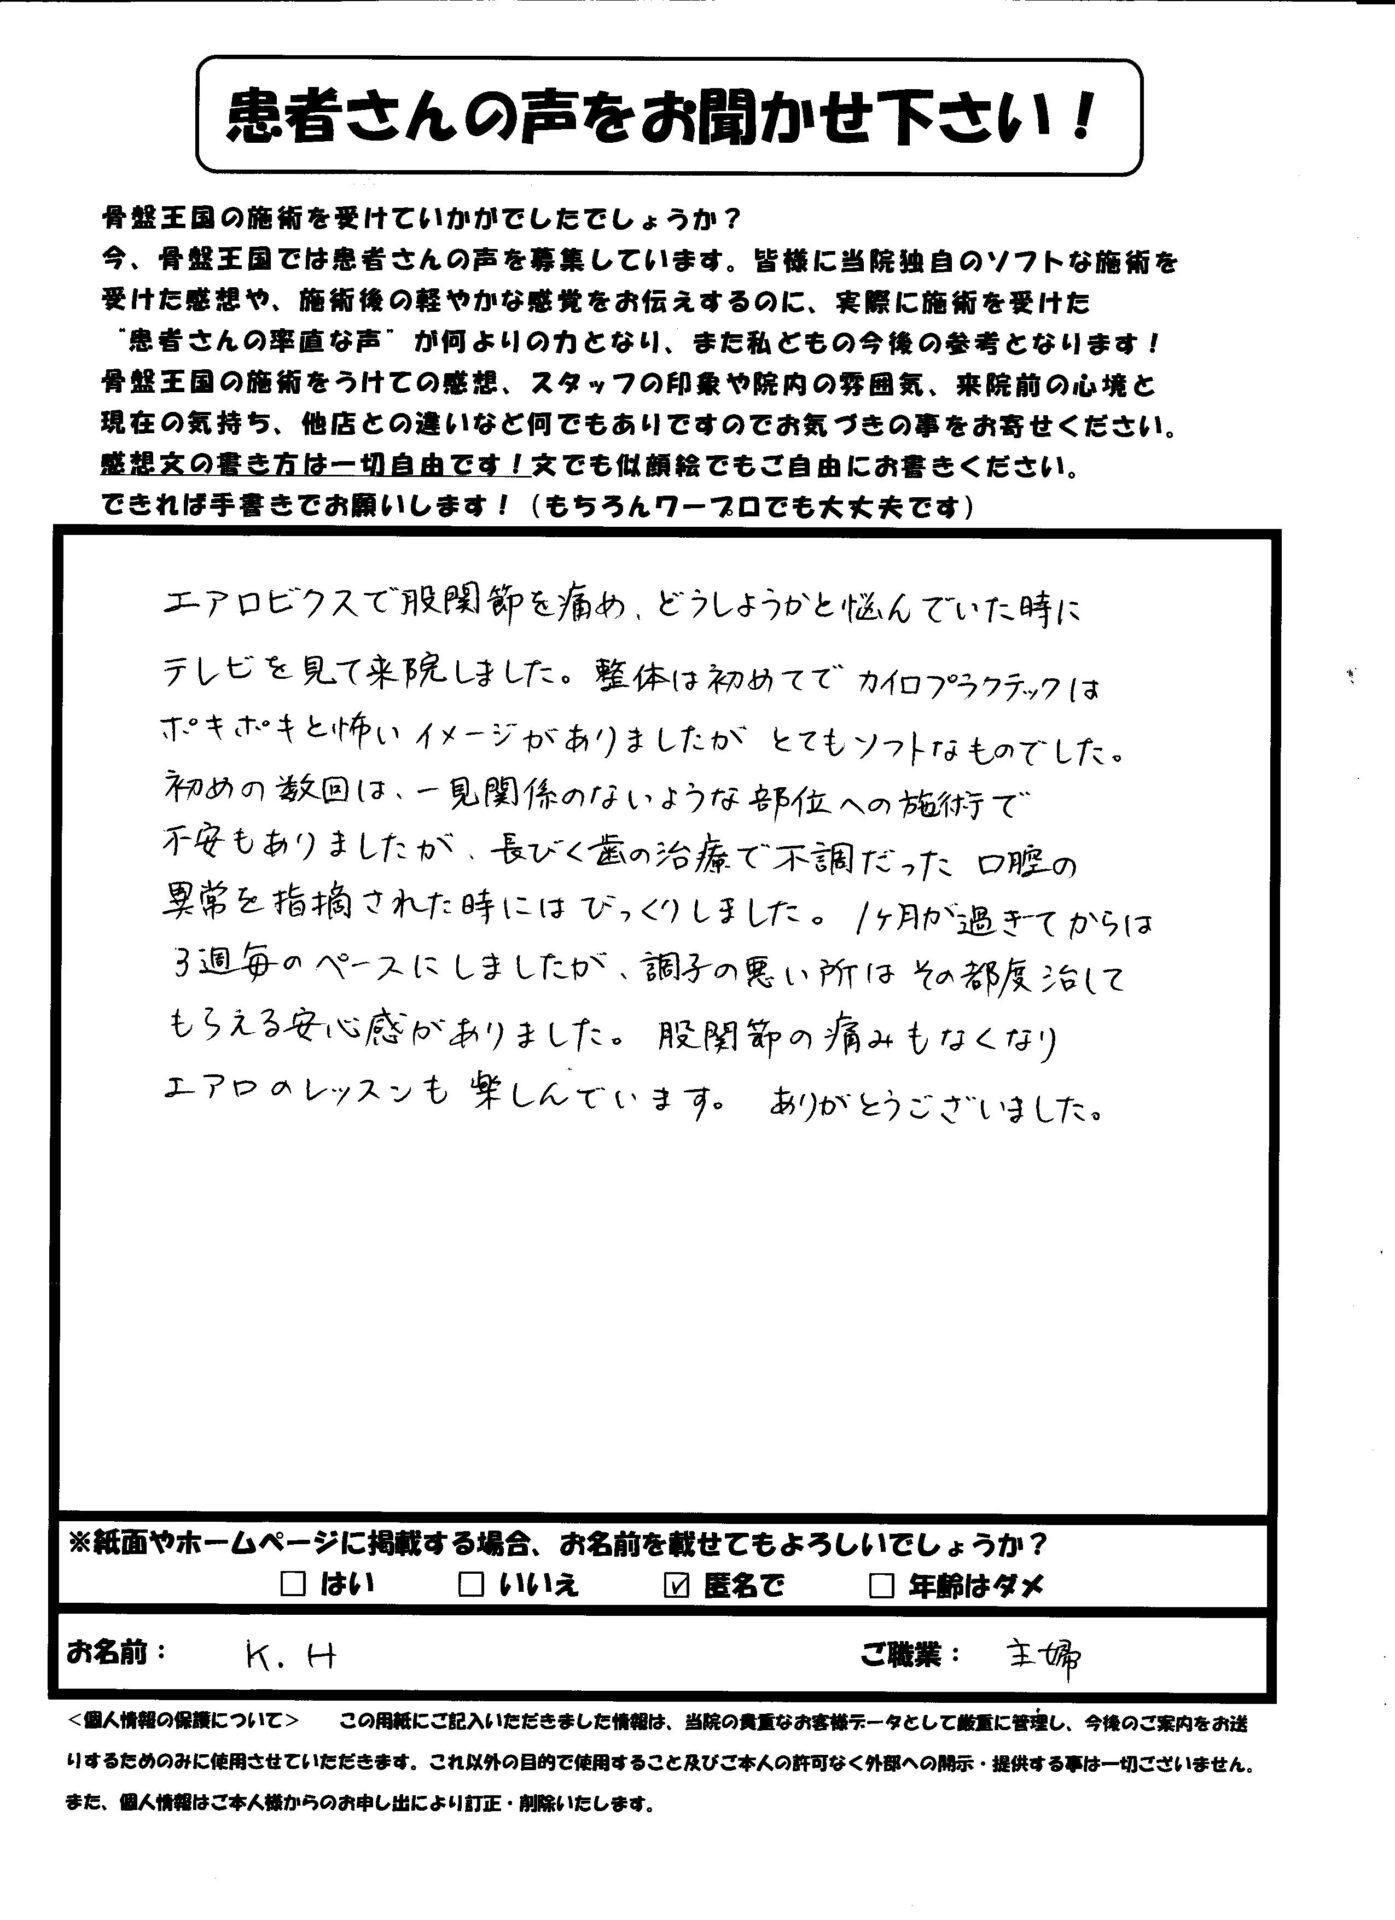 患者さんの声をお聞かせ下さい！
骨盤王国の施術を受けていかがでしたでしょうか？
今、骨盤王国では患者さんの声を募集しています。皆様に当院独自のソフトな施術を
受けた感想や、施術後の軽やかな感覚をお伝えするのに、実際に施術を受けた
“患者さんの率直な声”が何よりの力となり、また私どもの今後の参考となります！
骨盤王国の施術をうけての感想、スタッフの印象や院内の雰囲気、来院前の心境と
現在の気持ち、他店との違いなど何でもありですのでお気づきの事をお寄せください。
感想文の書き方は一切自由です！文でも似顔絵でもご自由にお書きください。
できれば手書きでお願いします！（もちろんワープロでも大丈夫です）
エアロビクスで股関節を痛め、どうしようかと悩んでいた時に
テレビを見て来院しました。整体は初めてで カイロプラクテックは
ポキポキと怖いイメージがありましたが とてもソフトなものでした。
初めの数回は、一見関係のないような部位への施術で
不安もありましたが、長びく歯の治療で不調だった 口腔の
異常を指摘された時にはびっくりしました。1ヶ月が過ぎてからは
3週毎のペースにしましたが、調子の悪い所は その都度治して
もらえる安心感がありました。 股関節の痛みもなくなり
エアロのレッスンも 楽しんでいます。 ありがとうございました。
※紙面やホームページに掲載する場合、お名前を載せてもよろしいでしょうか？
□ はい □ いいえ ☑ 匿名で □ 年齢はダメ
お名前： K.H ご職業： 主婦
＜個人情報の保護について＞ この用紙にご記入いただきました情報は、当院の貴重なお客様データとして厳重に管理し、今後のご案内をお送
りするためのみに使用させていただきます。これ以外の目的で使用すること及びご本人の許可なく外部への開示・提供する事は一切ございません。
また、個人情報はご本人様からのお申し出により訂正・削除いたします。